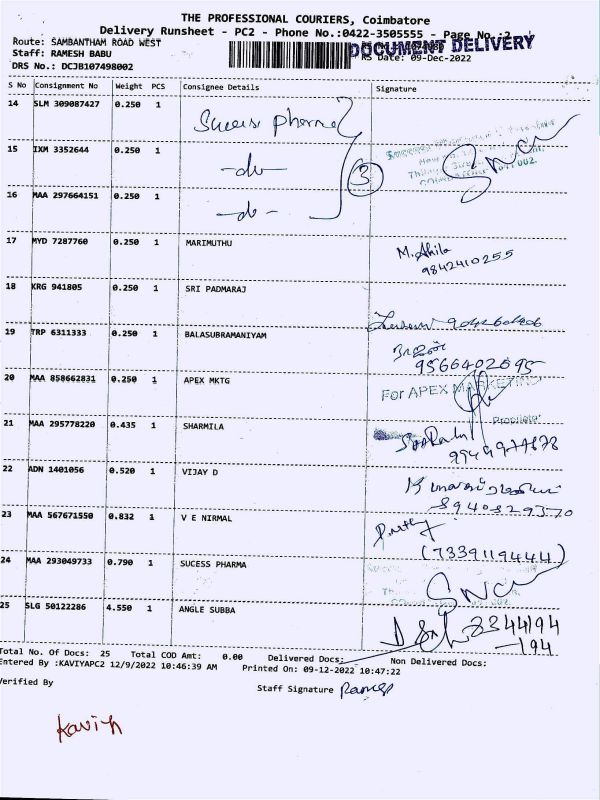 THE PROFESSIONAL COURIERS, Coimbatore
Delivery Runsheet - PC2 - Phone No.:0422-3505555 - Page No.:2
Route: SAMBANTHAM ROAD WEST
DOCUMENT DELIVERY
Staff: RAMESH BABU
RS Date: 09-Dec-2022
DRS No.: DCJB107498002
S No Consignment No Weight PCS Consignee Details Signature
14 SLM 309087427 0.250 1 Sucess pharma
15 IXM 3352644 0.250 1 -do- 3
16 MAA 297664151 0.250 1 -do-
17 MYD 7287760 0.250 1 MARIMUTHU M. Ahila
9842410255
18 KRG 941805 0.250 1 SRI PADMARAJ
19 TRP 6311333 0.250 1 BALASUBRAMANIYAM
9566402695
20 MAA 858662831 0.250 1 APEX MKTG For APEX MARKETING
21 MAA 295778220 0.435 1 SHARMILA
22 ADN 1401056 0.520 1 VIJAY D
8940829370
23 MAA 567671550 0.832 1 V E NIRMAL
(7339119444)
24 MAA 293049733 0.790 1 SUCESS PHARMA
25 SLG 50122286 4.550 1 ANGLE SUBBA
Total No. Of Docs: 25 Total COD Amt: 0.00 Delivered Docs: Non Delivered Docs:
Entered By :KAVIYAPC2 12/9/2022 10:46:39 AM Printed On: 09-12-2022 10:47:22
Verified By Staff Signature Ramesh